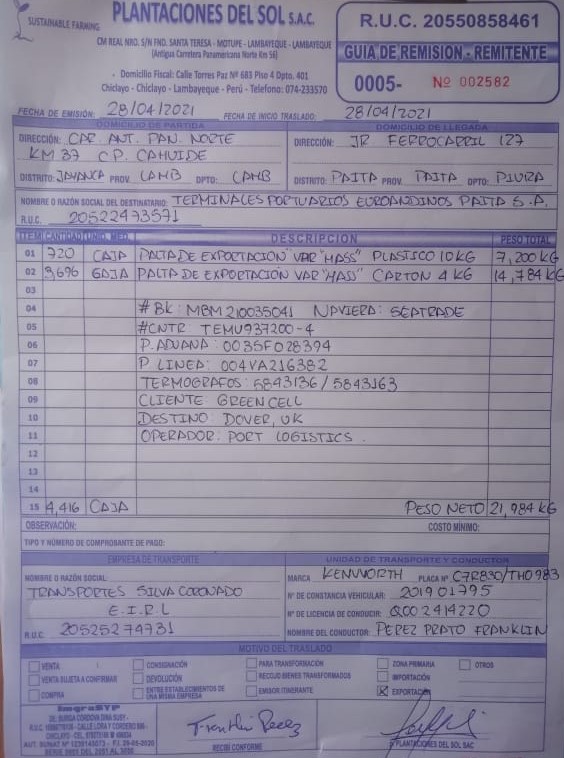 SUSTAINABLE FARMING
PLANTACIONES DEL SOL S.A.C.
CM REAL NRO. S/N FND. SANTA TERESA - MOTUPE - LAMBAYEQUE - LAMBAYEQUE
(Antigua Carretera Panamericana Norte Km 56)
Domicilio Fiscal: Calle Torres Paz Nº 683 Piso 4 Dpto. 401
Chiclayo - Chiclayo - Lambayeque - Perú - Telefono: 074-233570
R.U.C. 20550858461
GUIA DE REMISION - REMITENTE
0005- Nº 002582
FECHA DE EMISIÓN: 28/04/2021 FECHA DE INICIO TRASLADO: 28/04/2021
DOMICILIO DE PARTIDA
DIRECCIÓN: CAR. ANT. PAN. NORTE
KM 37 C.P. CAHUIDE
DISTRITO: JAYANCA PROV LAMB DPTO: LAMB
DOMICILIO DE LLEGADA
DIRECCIÓN: JR FERROCARRIL 127
DISTRITO: PAITA PROV PAITA DPTO: PIURA
NOMBRE O RAZÓN SOCIAL DEL DESTINATARIO: TERMINALES PORTUARIOS EUROANDINOS PAITA S.A.
R.U.C. 20522473571
ITEM CANTIDAD UNID. MED. DESCRIPCION PESO TOTAL
01 720 CAJA PALTA DE EXPORTACION VAR "HASS" PLASTICO 10 KG 7,200 KG
02 3,696 CAJA PALTA DE EXPORTACION VAR "HASS" CARTON 4 KG 14,784 KG
03
04 # BK: MBM210035041 NAVIERA: SEATRADE
05 #CNTR: TEMU937200-4
06 P. ADUANA: 0035F028394
07 P LINEA: 004VA216382
08 TERMOGRAFOS: 5843136 / 5843163
09 CLIENTE: GREENCELL
10 DESTINO: DOVER, UK
11 OPERADOR: PORT LOGISTICS.
12
13
14
15 4,416 CAJA PESO NETO 21,984 KG
OBSERVACIÓN: COSTO MÍNIMO:
TIPO Y NÚMERO DE COMPROBANTE DE PAGO:
EMPRESA DE TRANSPORTE
NOMBRE O RAZÓN SOCIAL:
TRANSPORTES SILVA CORONADO
E.I.R.L
R.U.C. 20525274731
UNIDAD DE TRANSPORTE Y CONDUCTOR
MARCA KENWORTH PLACA Nº C7R830/TH0983
Nº DE CONSTANCIA VEHICULAR: 201901795
Nº DE LICENCIA DE CONDUCIR: Q002414220
NOMBRE DEL CONDUCTOR: PEREZ PRATO FRANKLIN
MOTIVO DEL TRASLADO
VENTA
VENTA SUJETA A CONFIRMAR
COMPRA
CONSIGNACIÓN
DEVOLUCIÓN
ENTRE ESTABLECIMIENTOS DE UNA MISMA EMPRESA
PARA TRANSFORMACIÓN
RECOJO BIENES TRANSFORMADOS
EMISOR ITINERANTE
ZONA PRIMARIA
IMPORTACIÓN
EXPORTACIÓN
OTROS
ImgraSYP
Franklin Perez
RECIBÍ CONFORME
P/ PLANTACIONES DEL SOL SAC